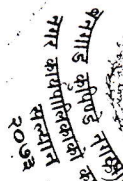 बनगाड कुपिण्डे नगर
नगर कार्यपालिकाको का
सल्यान
२०७३